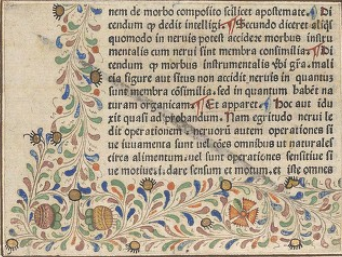 nem de morbo composito scilicet apostemate. ¶ Di
cendum ꝙ dedit intelligi. ¶ Secundo diceret aliqs
quomodo in neruis potest accidere morbus instru
mentalis cum nerui sint membra consimilia. ¶ Di
cendum ꝙ morbus instrumentalis gra.
cia figure aut situs non accidit neruis in quantus
sunt membra cōsimilia, sed in quantum habēt na
turam organicam. ¶ Et apparet. ¶ Hoc aut idu
xit quasi ad probandum. ¶ Nam egritudo nerui le
dit operationem neruorū autem operationes si
ue iuuamenta sunt uel cōes omnibus ut naturales
circa alimentum. uel sunt operationes sensitiue si
ue motiue. dare sensum et motum. et iste omnes